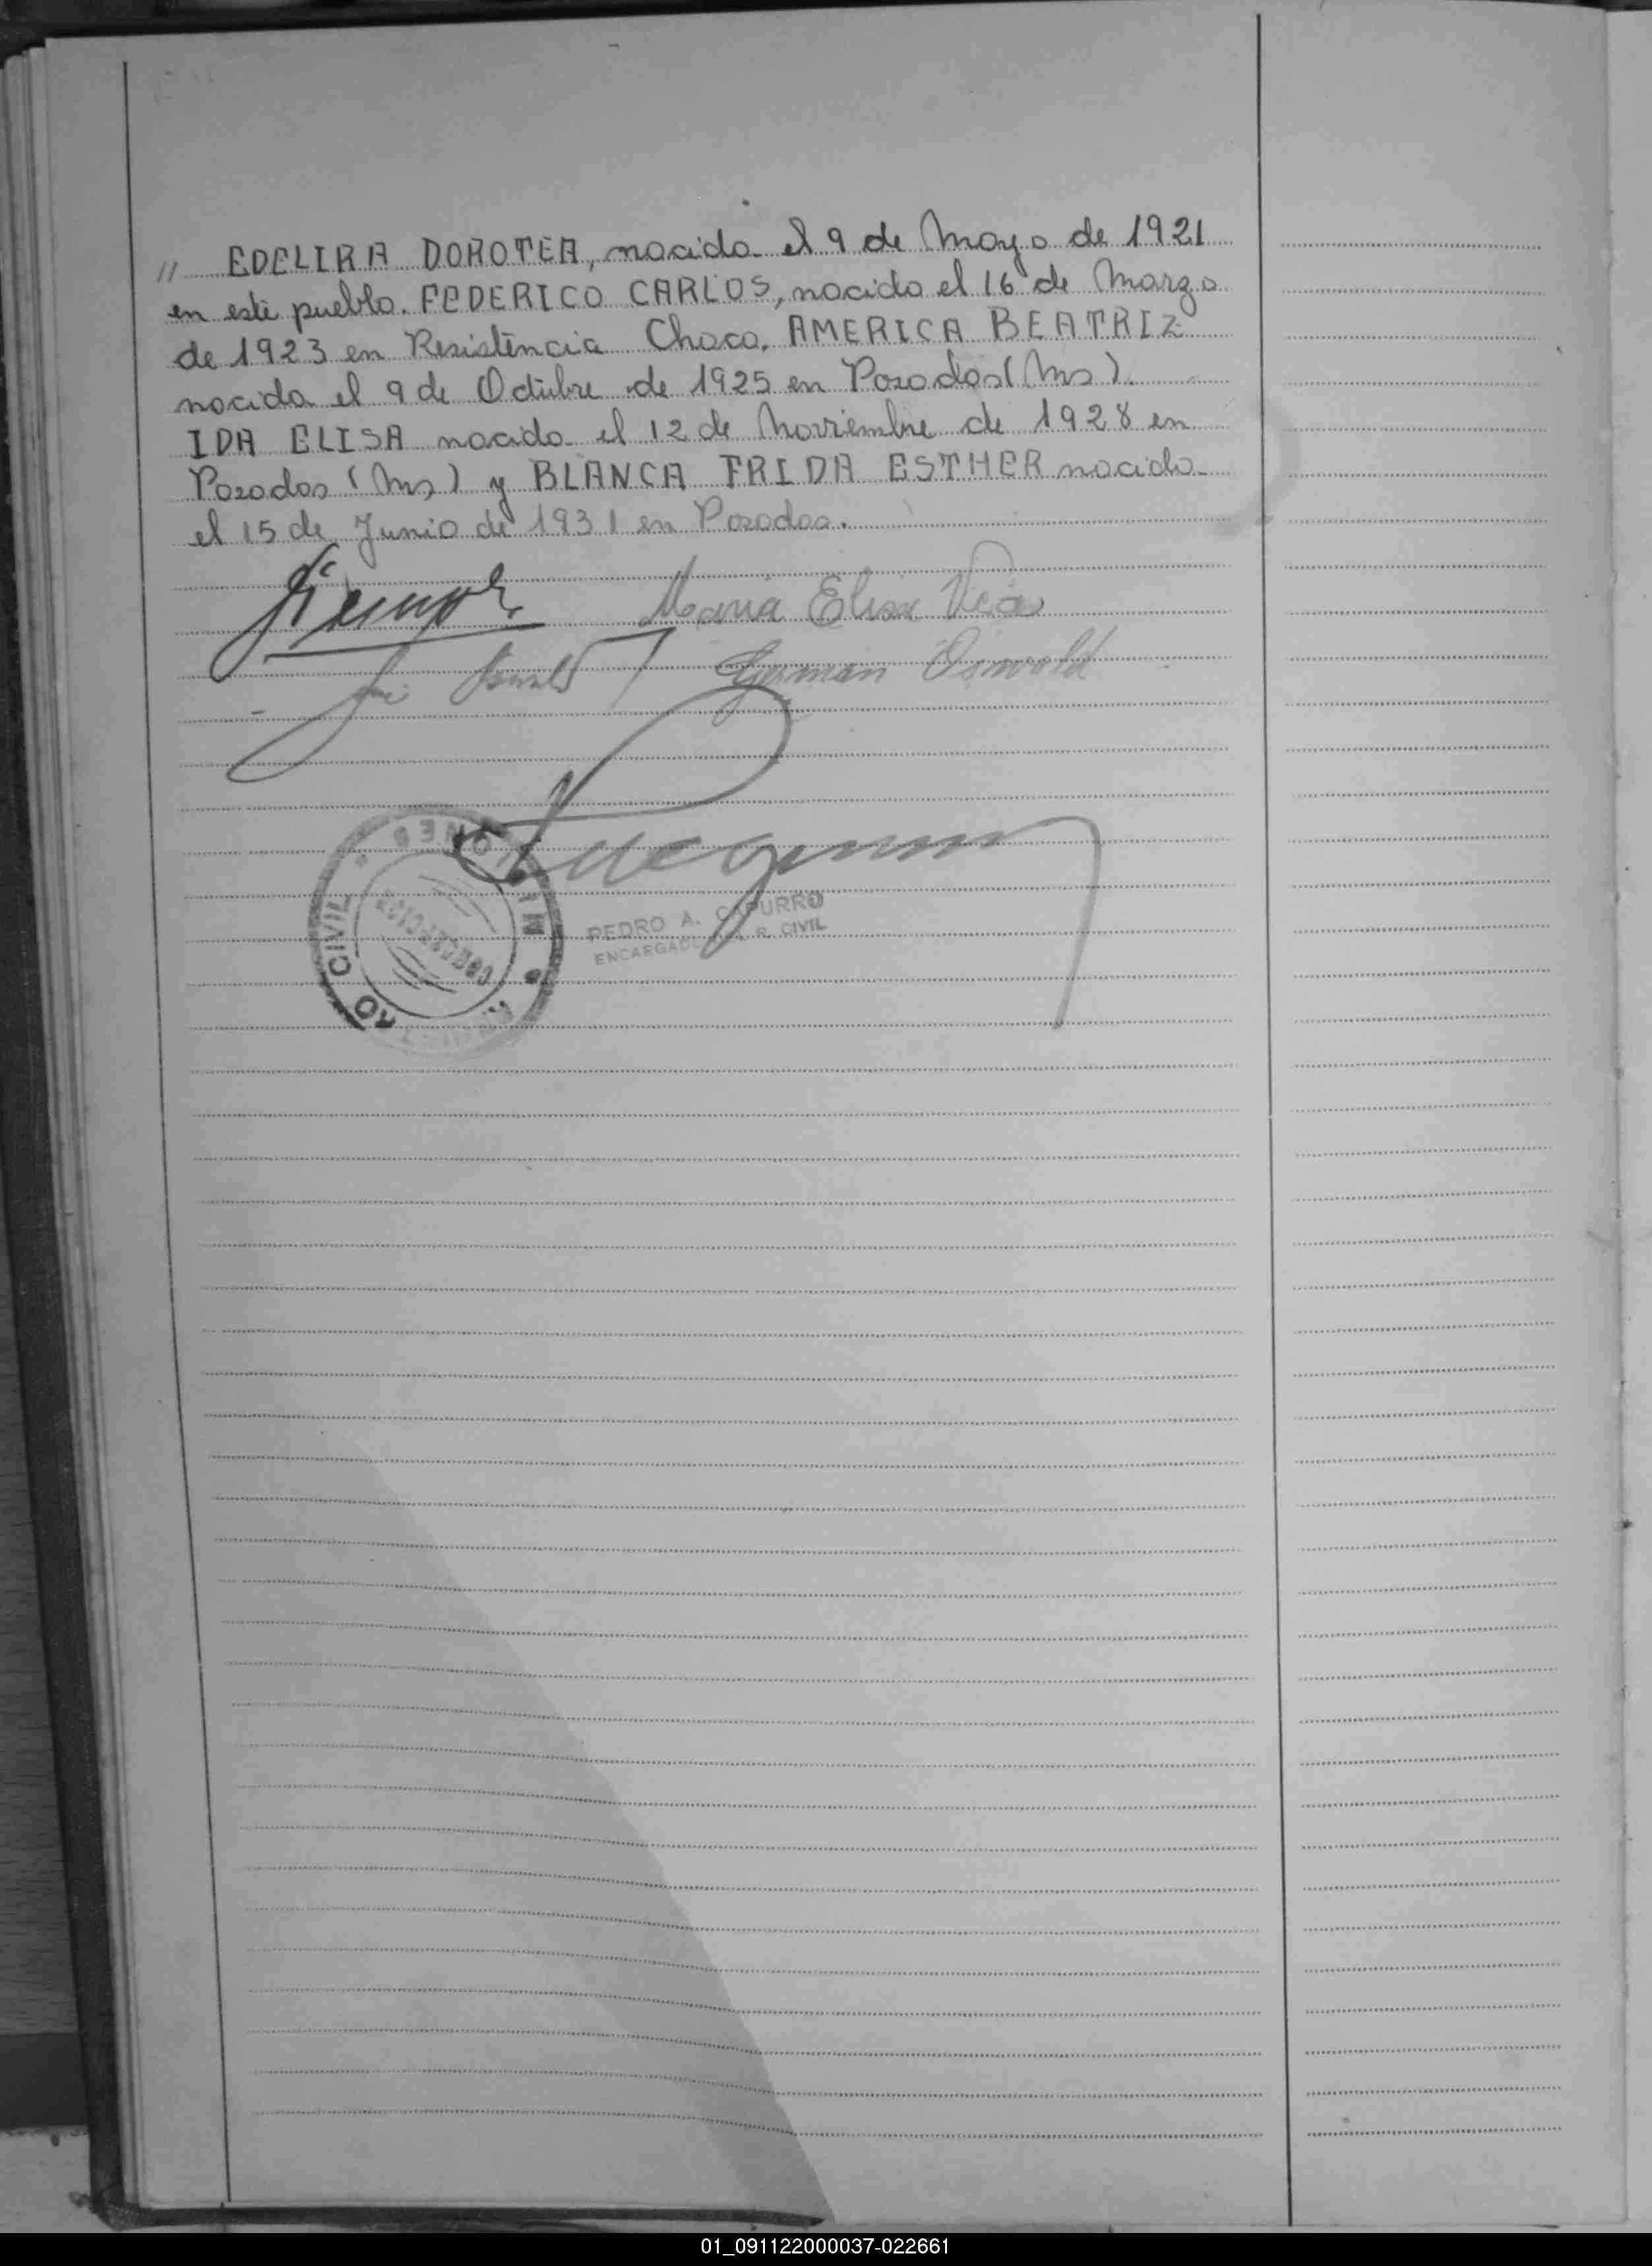 // EDELIRA DOROTEA, nacida el 9 de Mayo de 1921
en este pueblo. FEDERICO CARLOS, nacido el 16 de Marzo
de 1923 en Resistencia Chaco. AMERICA BEATRIZ
nacida el 9 de Octubre de 1925 en Posadas (Mns).
IDA ELISA nacida el 12 de Noviembre de 1928 en
Posadas (Mns) y BLANCA FRIDA ESTHER nacida
el 15 de Junio de 1931 en Posadas.
Maria Elisa
German Oswald
CIVIL
PEDRO A. CAPURRO
ENCARGADO R. CIVIL
01_091122000037-022661